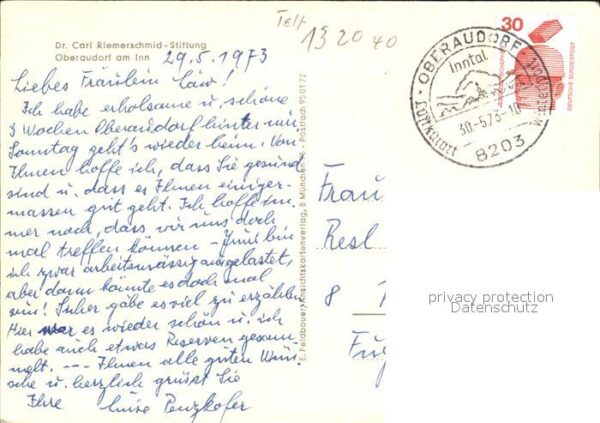 Dr. Carl Riemerschmid - Stiftung
Oberaudorf am Inn
29.5.1973
Liebes Fräulein Löw!
Ich habe erholsame u. schöne
3 Wochen Oberaudorf hinter mir.
Sonntag geht's wieder heim. Von
Ihnen hoffe ich, dass Sie gesund
sind u. dass es Ihnen einiger-
massen gut geht. Ich hoffe im-
mer noch, dass wir uns doch
mal treffen können - Juni bin
ich zwar arbeitsmässig ausgelastet,
aber dann könnte es doch mal
sein! Sicher gäbe es viel zu erzählen
Hier war es wieder schön u. ich
habe auch etwas Reserven gesam-
melt. --- Ihnen alle guten Wün-
sche u. herzlich grüßt Sie
Ihre Luise Penzkofer
E. Feldbauer, Ansichtskartenverlag, 8 München 76 - Postfach 95 01 22
Telf
13 20 40
30
DEUTSCHE BUNDESPOST
OBERAUDORF
Inntal
30.-5.73-10
Luftkurort
8203
Frau
Resl
8
privacy protection
Datenschutz